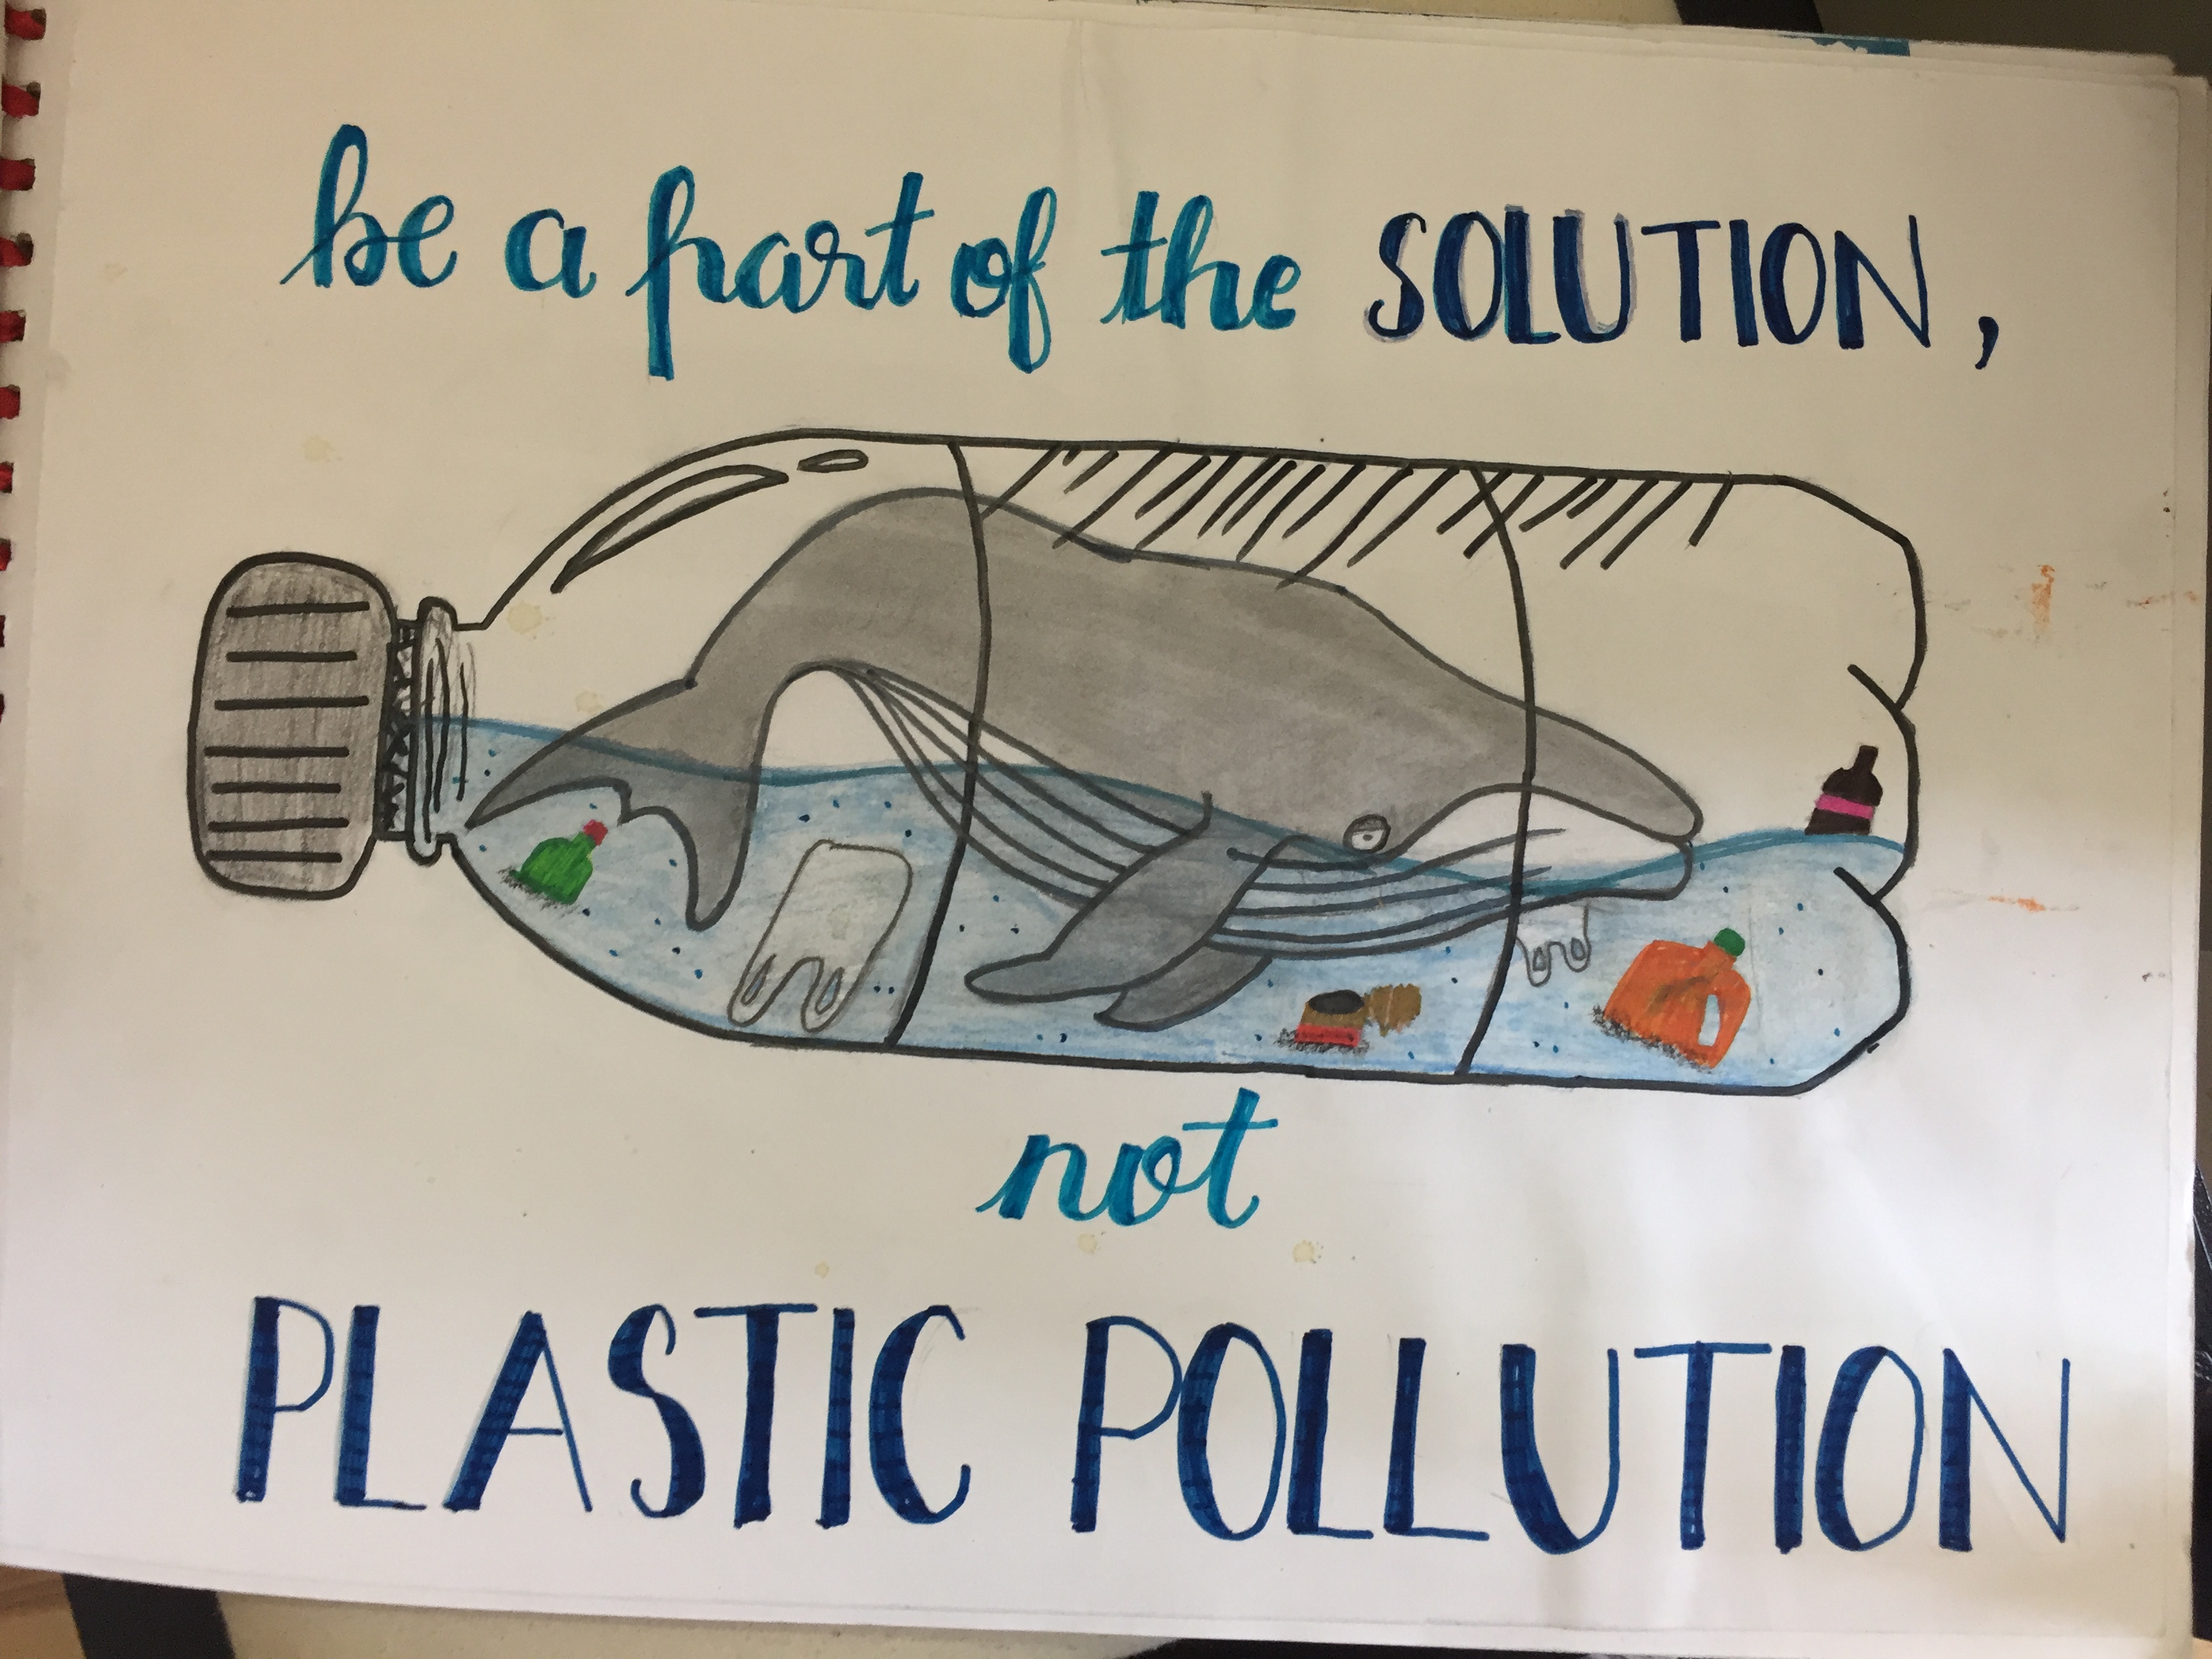 be a part of the SOLUTION,
not
PLASTIC POLLUTION